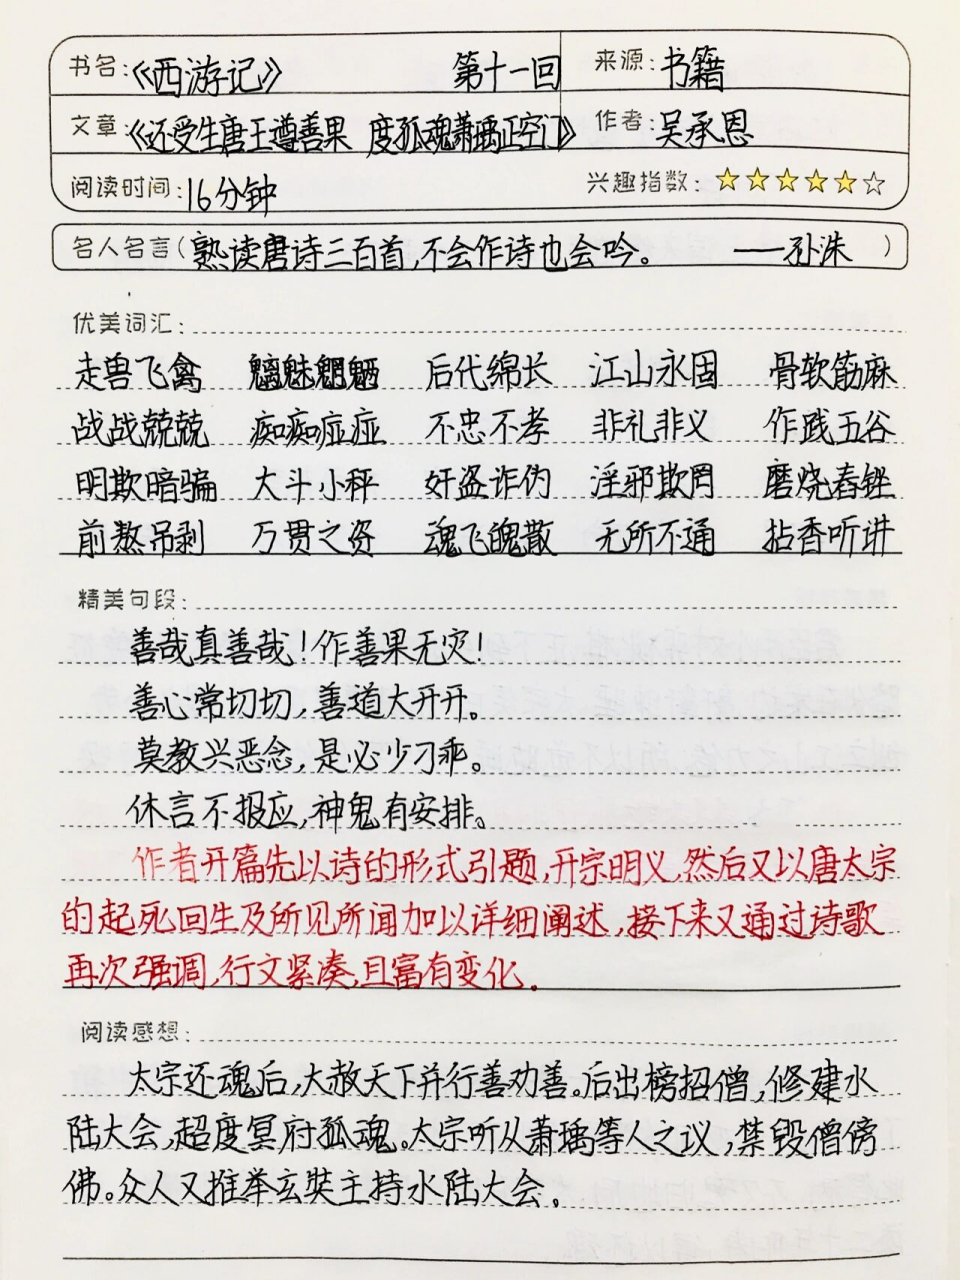 书名:《西游记》 第十一回 来源:书籍
文章:《还受生唐王遵善果 度孤魂萧瑀正空门》 作者:吴承恩
阅读时间:16分钟 兴趣指数:
名人名言(熟读唐诗三百首,不会作诗也会吟。 ——孙洙 )
优美词汇:
走兽飞禽 魑魅魍魉 后代绵长 江山永固 骨软筋麻
战战兢兢 痴痴痖痖 不忠不孝 非礼非义 作践五谷
明欺暗骗 大斗小秤 奸盗诈伪 淫邪欺罔 磨烧舂锉
煎熬吊剥 万贯之资 魂飞魄散 无所不通 拈香听讲
精美句段:
善哉真善哉!作善果无灾!
善心常切切,善道大开开。
莫教兴恶念,是必少刁乖。
休言不报应,神鬼有安排。
作者开篇先以诗的形式引题,开宗明义,然后又以唐太宗
的起死回生及所见所闻加以详细阐述,接下来又通过诗歌
再次强调,行文紧凑,且富有变化.
阅读感想:
太宗还魂后,大赦天下并行善劝善。后出榜招僧,修建水
陆大会,超度冥府孤魂。太宗听从萧瑀等人之议,禁毁僧傍
佛。众人又推举玄奘主持水陆大会.